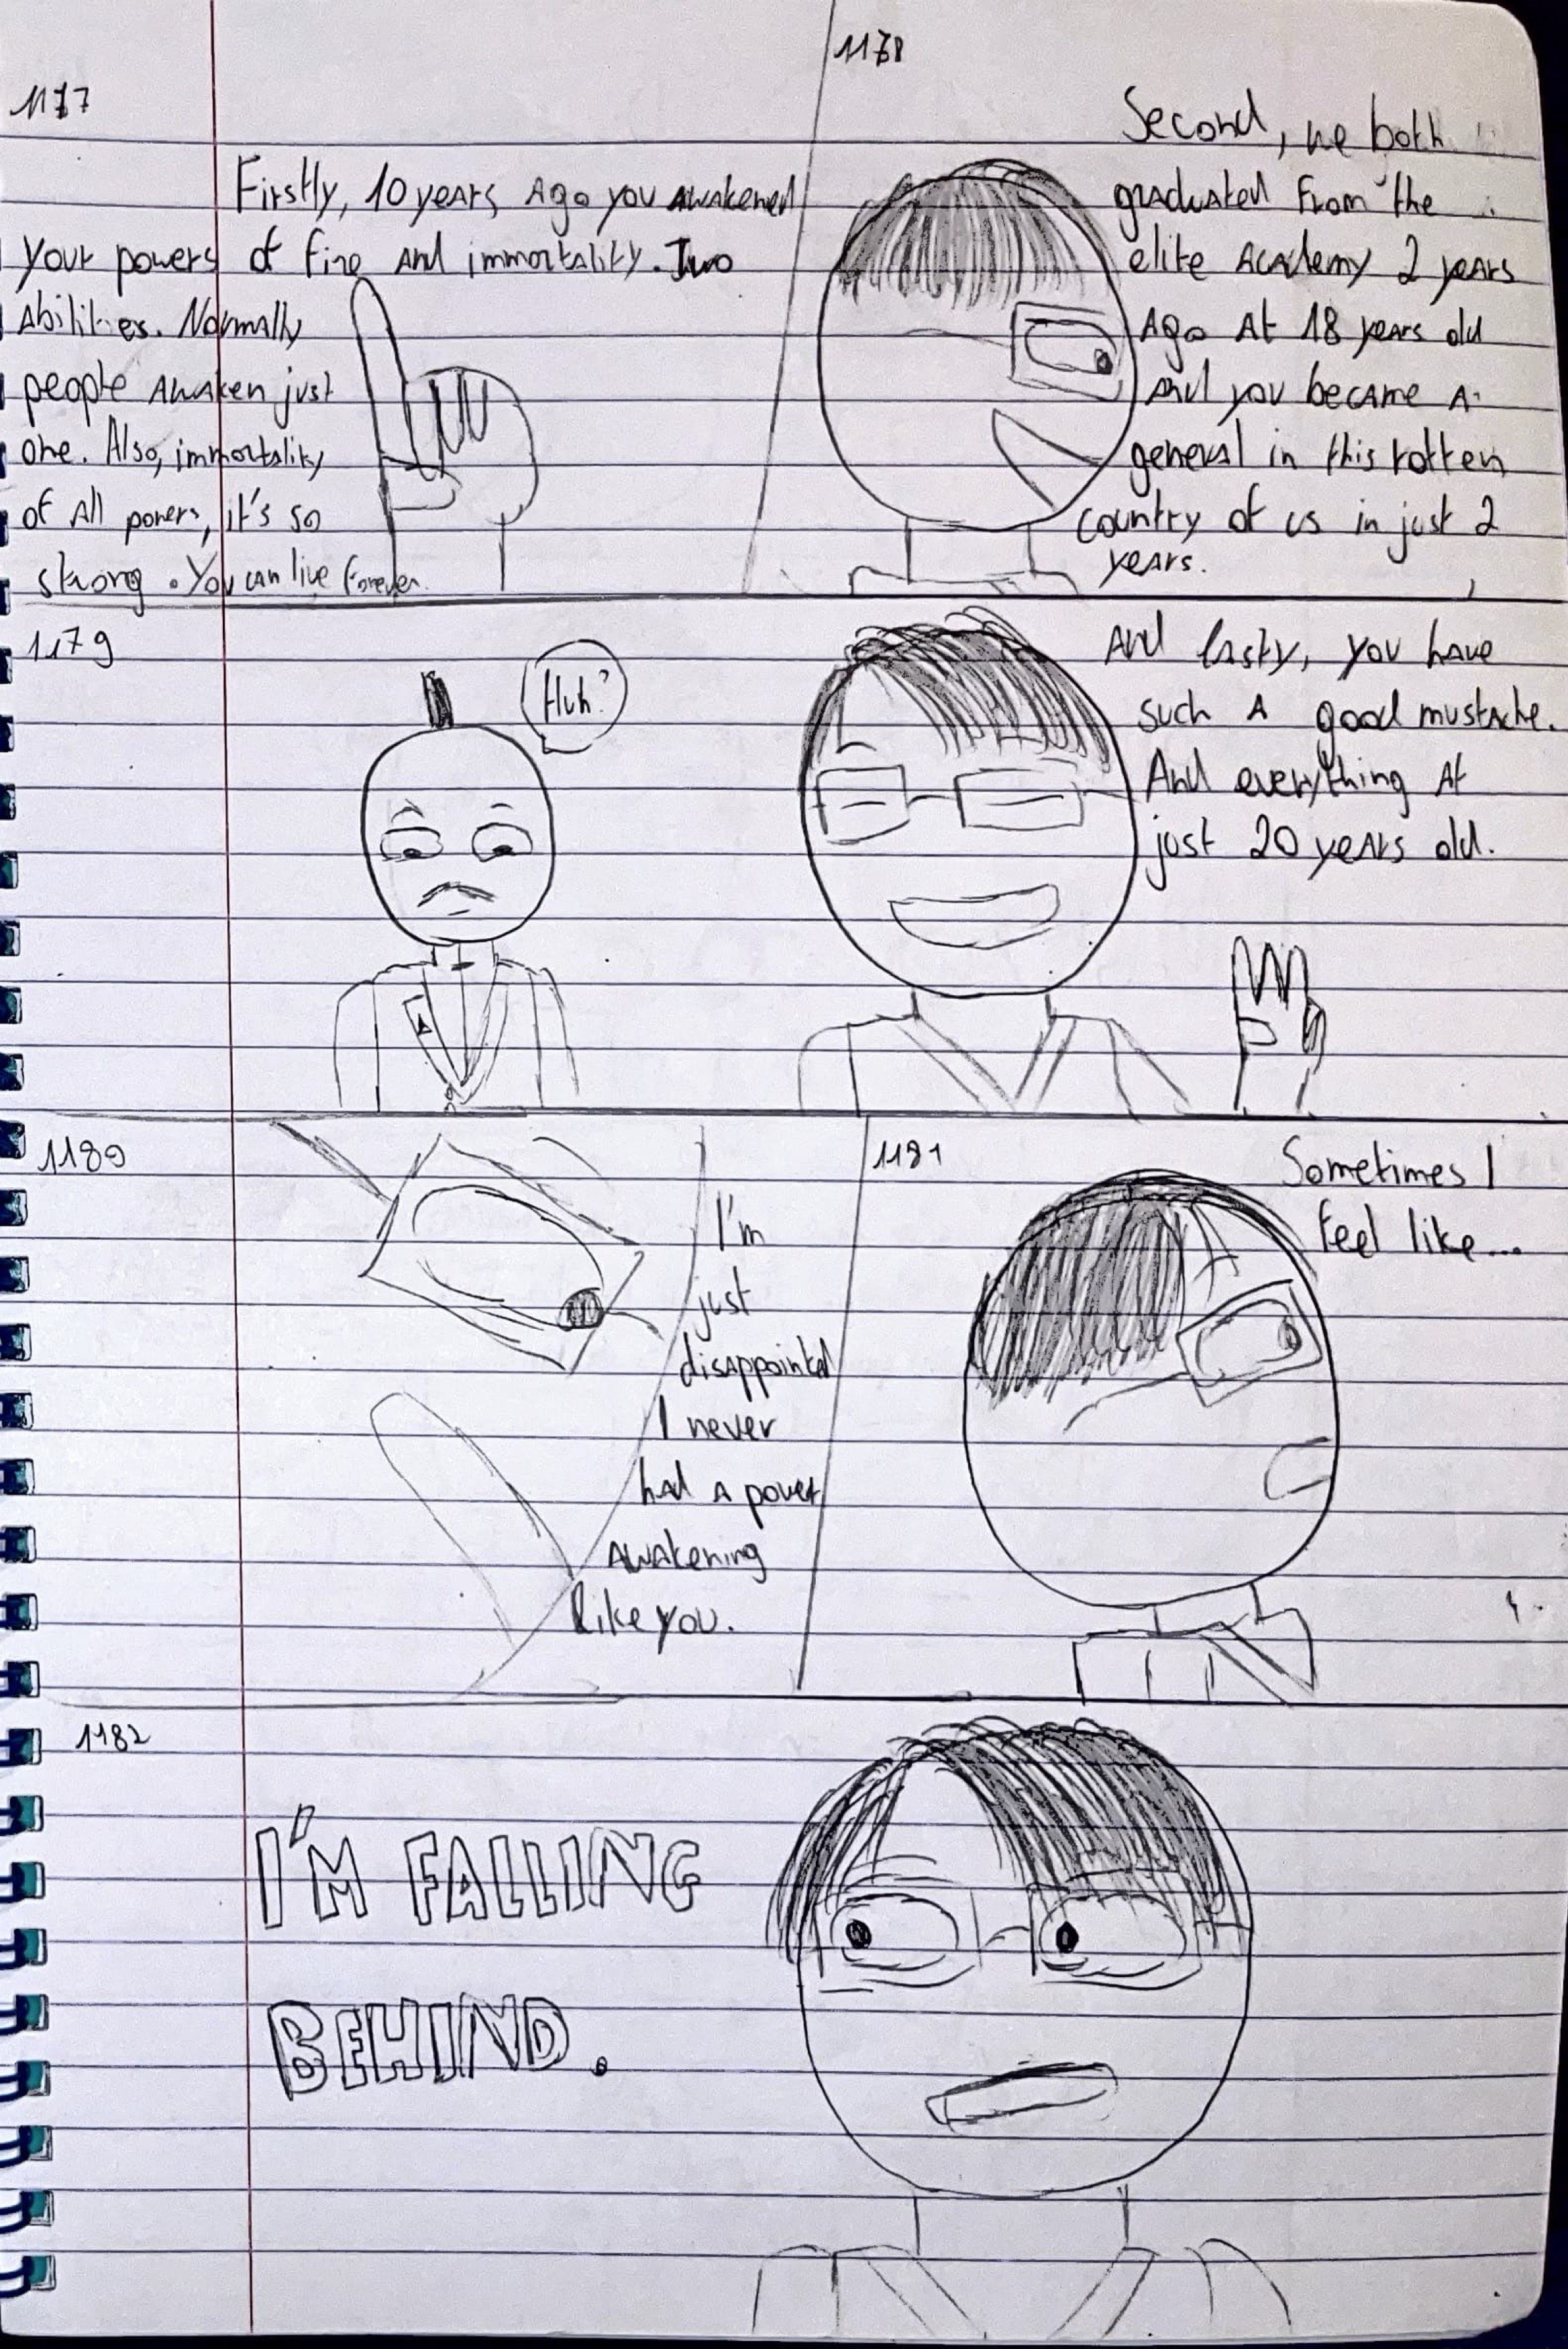 1177
Firstly, 10 years Ago you awakened
your powers of fire and immortality. Two
Abilities. Normally
people awaken just
one. Also, immortality
of All powers, it's so
strong. You can live forever.
1178
Second, we both
graduated from the
elite Academy 2 years
Ago At 18 years old
And you became A
general in this rotten
country of us in just 2
years.
1179
Huh?
And lasty, you have
such A good mustache.
And everything At
just 20 years old.
1180
I'm
just
disappointed
I never
had A power
awakening
like you.
1181
Sometimes I
feel like...
1182
I'M FALLING
BEHIND.